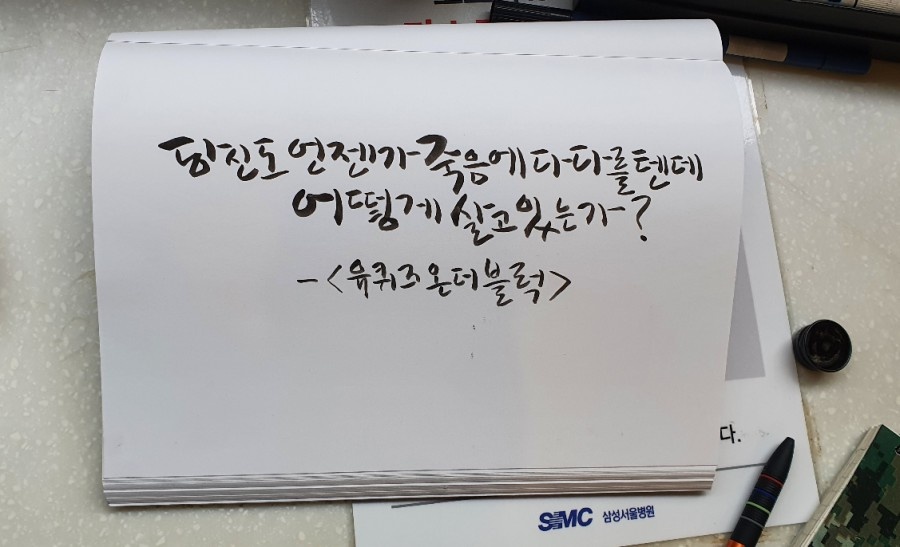 당신도 언젠가 죽음에 다다를텐데
어떻게 살고있는가?
- <유퀴즈온더블럭>
다.
SMC 삼성서울병원